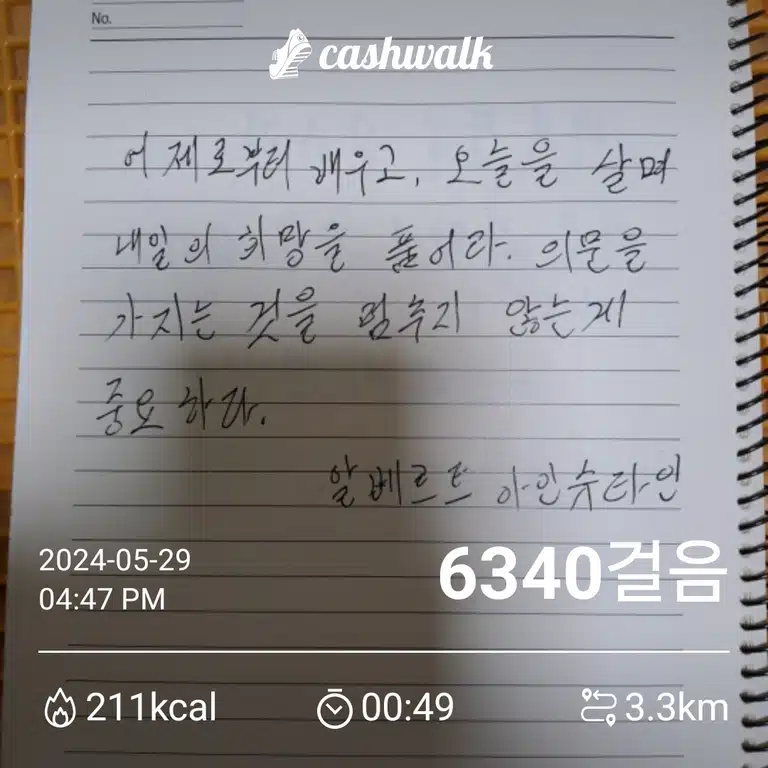 No.
cashwalk
어제로부터 배우고, 오늘을 살며
내일의 희망을 품어라. 의문을
가지는 것을 멈추지 않는게
중요하다.
알베르트 아인슈타인
2024-05-29
04:47 PM
6340걸음
211kcal
00:49
3.3km